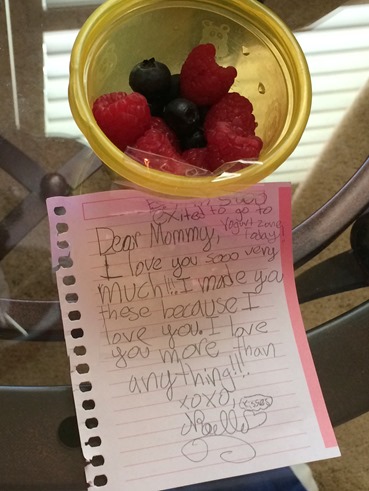 exited to go to
Yogurt zone
today!!
Dear Mommy,
I love you sooo very
much!!! I made you
these because I
love you. I love
you more than
anything!!!
xoxo,